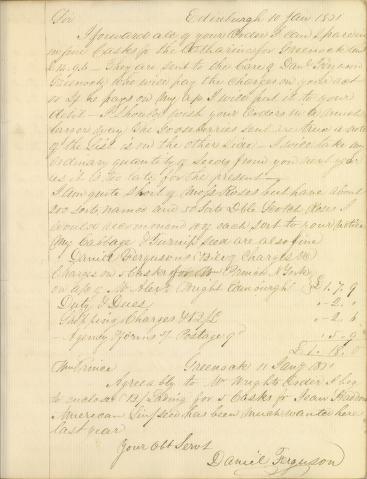 Sir Edinburgh 10 Jan 1831
I forward all of your Order I can spare in
five Casks p the Catharine for Greenock
They are sent to the Care of Danl Ferguson
Greenock who will pay the Charges on your act
or If he pays on My a/c I will put it to your
Debit I should wish your Orders to be much
larger The Gooseberries sent
of the List is on the other side I will take my
ordinary quantity of Seeds from you next year
as it is too late for the present
I am quite short of Moss Roses but have about
200 Sorts named and 50 Sorts Dble Scotch Roses I
would recommend of each Sort to your notice
My Cabbage & Turnip seed are also fine
Daniel Fergusons Charges
Charges on 5 Casks for Wm Prince N York
on a/c of Mr Alexr Wright Edinburgh £1.7.9
Duty & Dues .. 2.
Shipping Charges & B/L .. 2. 6
Agency Forms & Postage 9d
£1. 18.
Wm Prince Greenock 11 Jany 1831
Agreeably to Mr Wrights Order I beg
to enclose B/Lading for 5 Casks p
American has been much wanted here
last year
Your Obt Servt
Daniel Ferguson